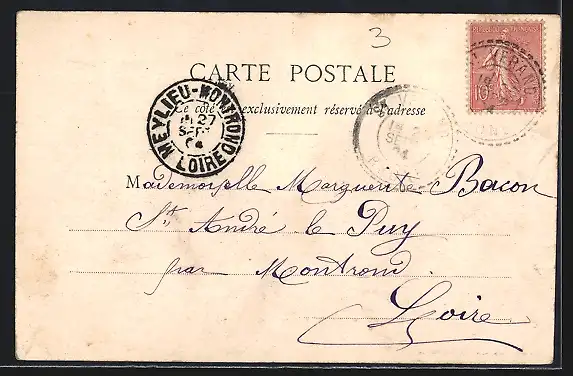 3
CARTE POSTALE
Ce côté exclusivement réservé à l'adresse
MEYLIEU-MONTROND
27
SEPT
04
LOIRE
10
Mademoiselle Marguerite Bacon
St André le Puy
par Montrond
Loire